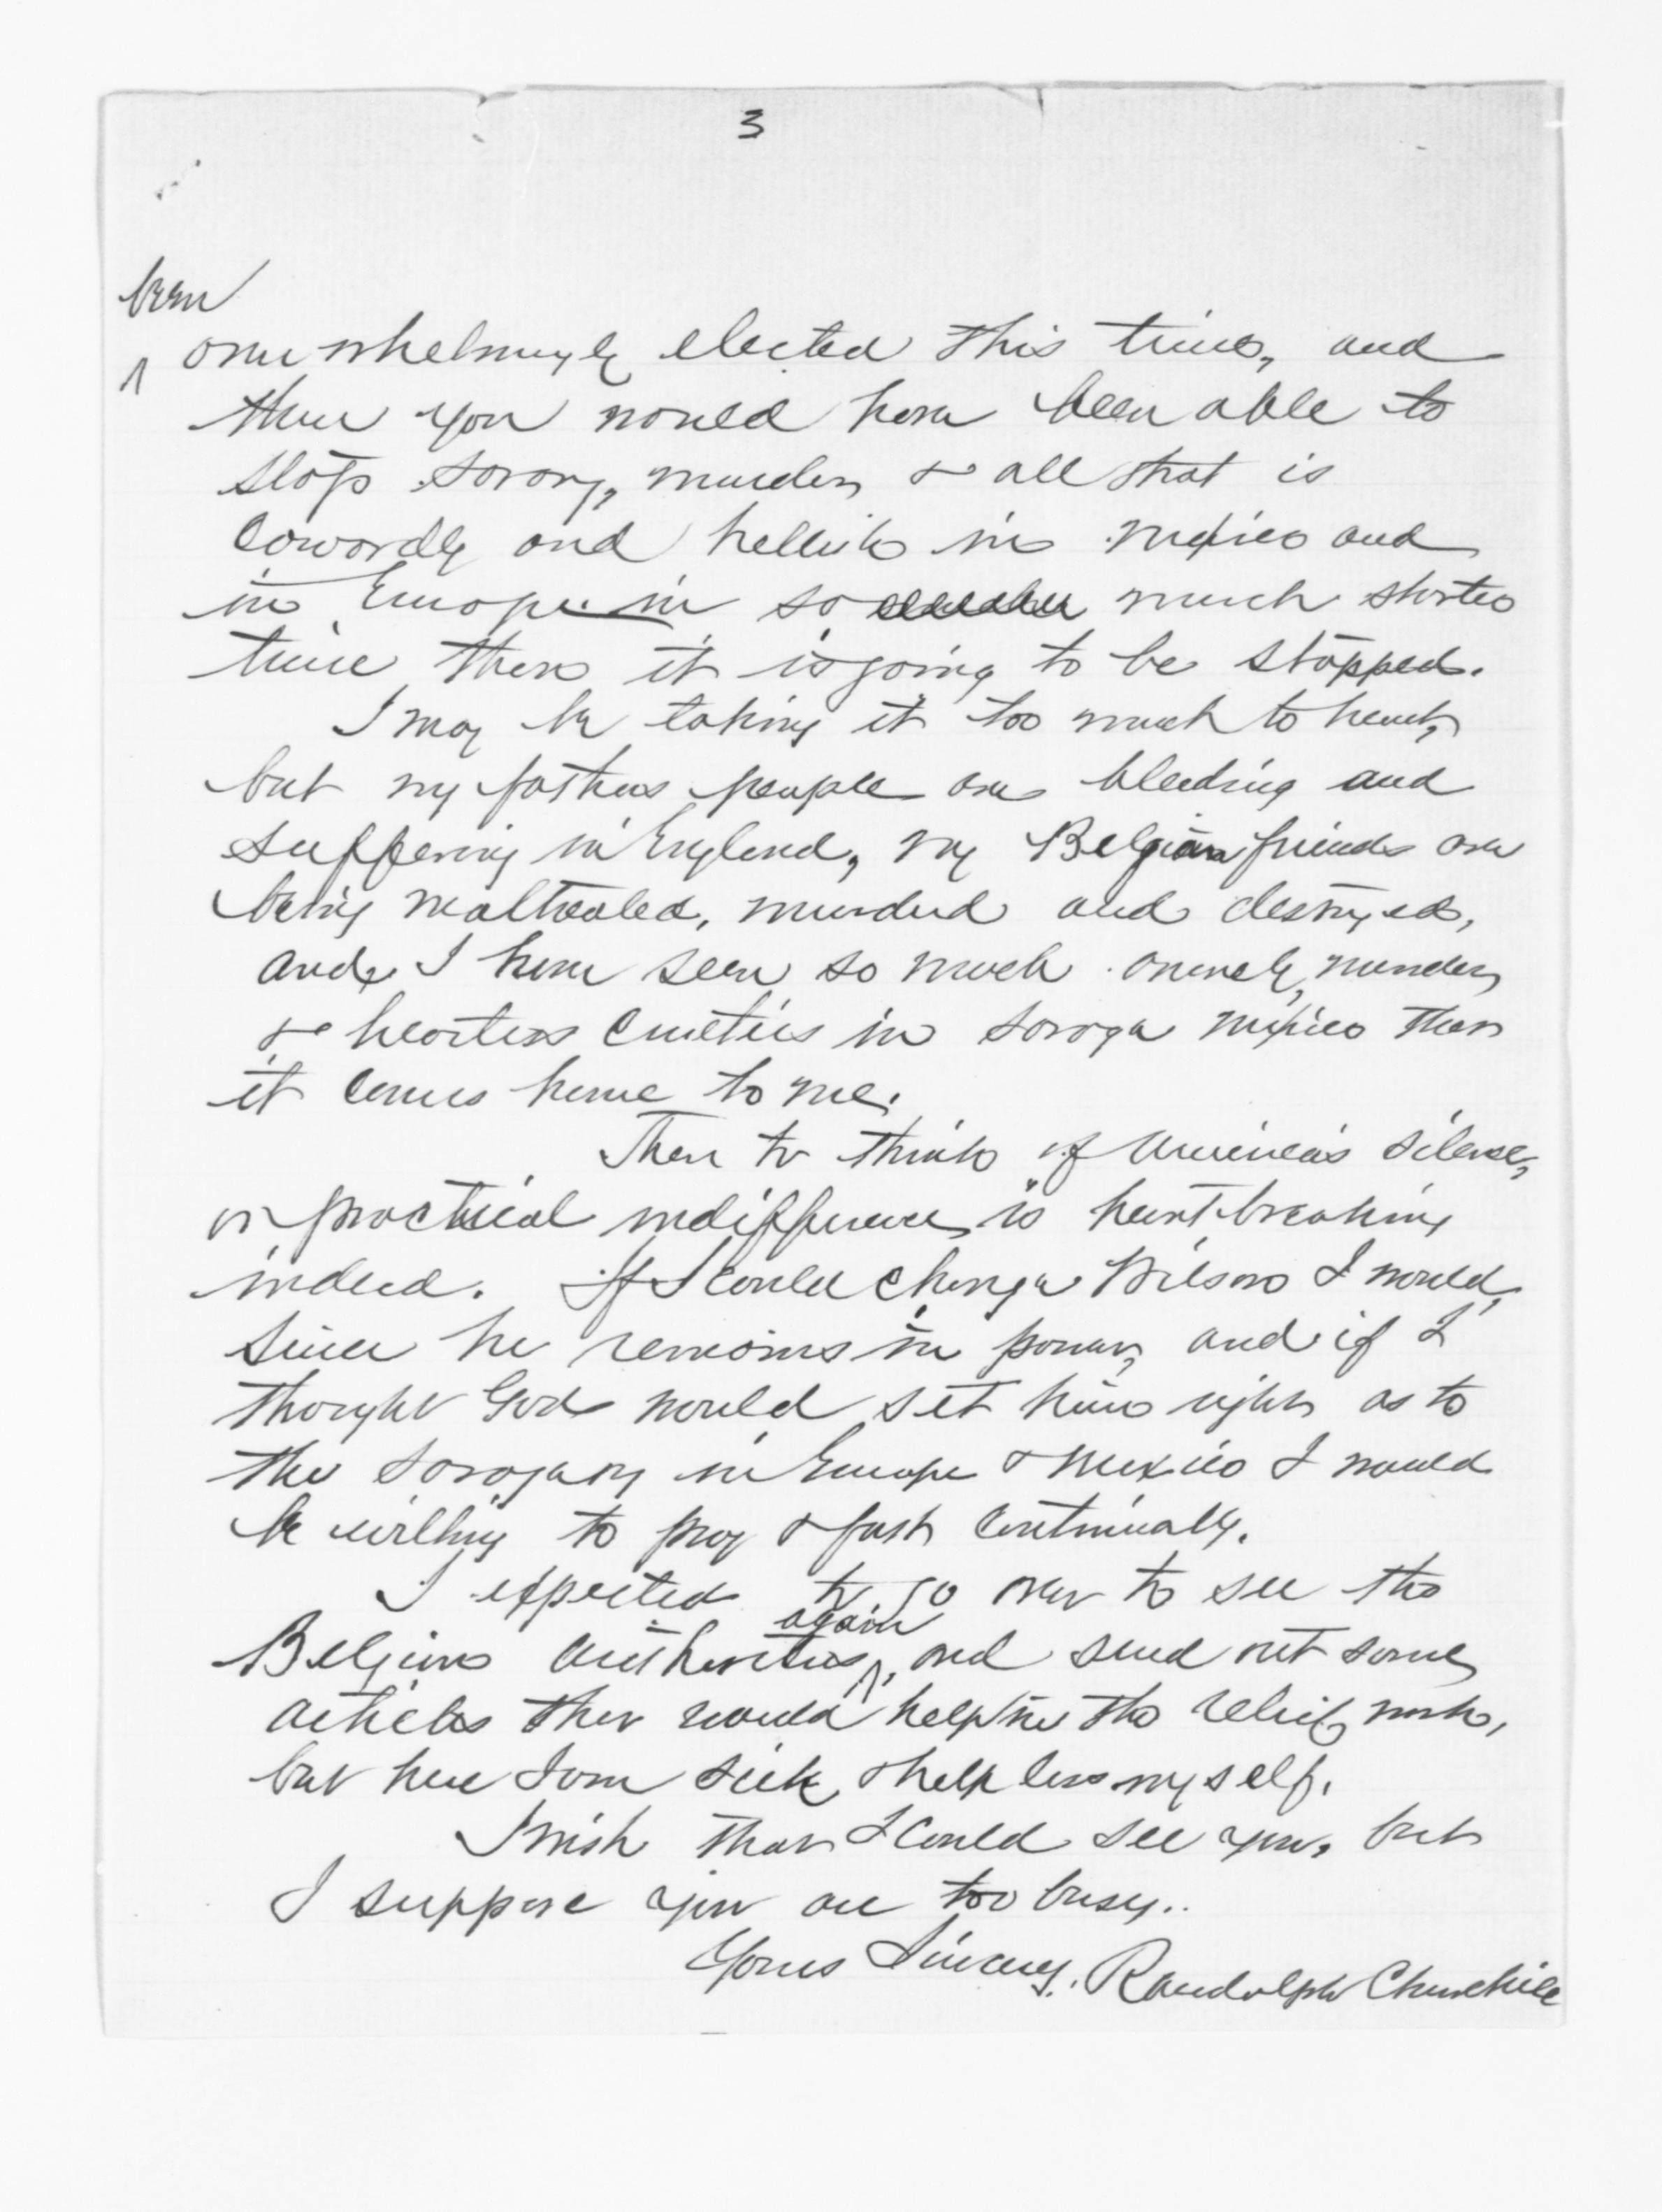 3
been
overwhelmingly elected this time, and
then you would have been able to
stop savagry, murder, & all that is
cowardly and hellish in Mexico and
in Europe in so much shorter
time than it is going to be stopped.
I may be taking it too much to heart,
but my fathers people are bleeding and
suffering in England, my Belgian friends are
being maltreated, murdered and destroyed,
and I have seen so much murder,
& heartless cruelties in savage Mexico that
it comes home to me.
Then to think of America's silence,
or practical indifference, is heart-breaking
indeed. If I could change Wilson I would,
since he remains in power, and if I
thought God would set him right as to
the savagary in Europe & Mexico I would
be willing to pray & fast continually.
I expected to go over to see the
again
Belgian authorities, and send out some
articles that would help in the relief work,
but here I am sick, & helpless myself.
I wish that I could see you, but
I suppose you are too busy..
Yours Sincerely, Randolph Churchill